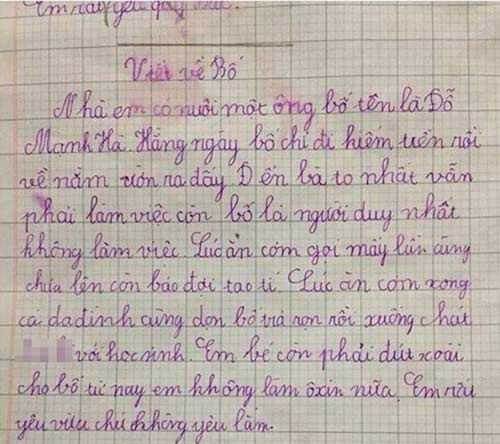 Em rất yêu quý
Viết về Bố
Nhà em co nuôi một ông bố tên là Đỗ
Mạnh Hà. Hằng ngày bố chỉ đi kiếm tiền rồi
về nằm ườn ra đấy Đến bà to nhất vẫn
phải làm việc còn bố là người duy nhất
không làm việc. Lúc ăn cơm gọi mấy lần cũng
chưa lên còn bảo đợi tao tí. Lúc ăn cơm xong
cả da đình cùng dọn bố vừa rọn rồi xuống chat
với học sinh. Em bé còn phải dút xoài
cho bố từ nay em không làm ôxin nữa. Em
yêu vừa chứ không yêu lắm.